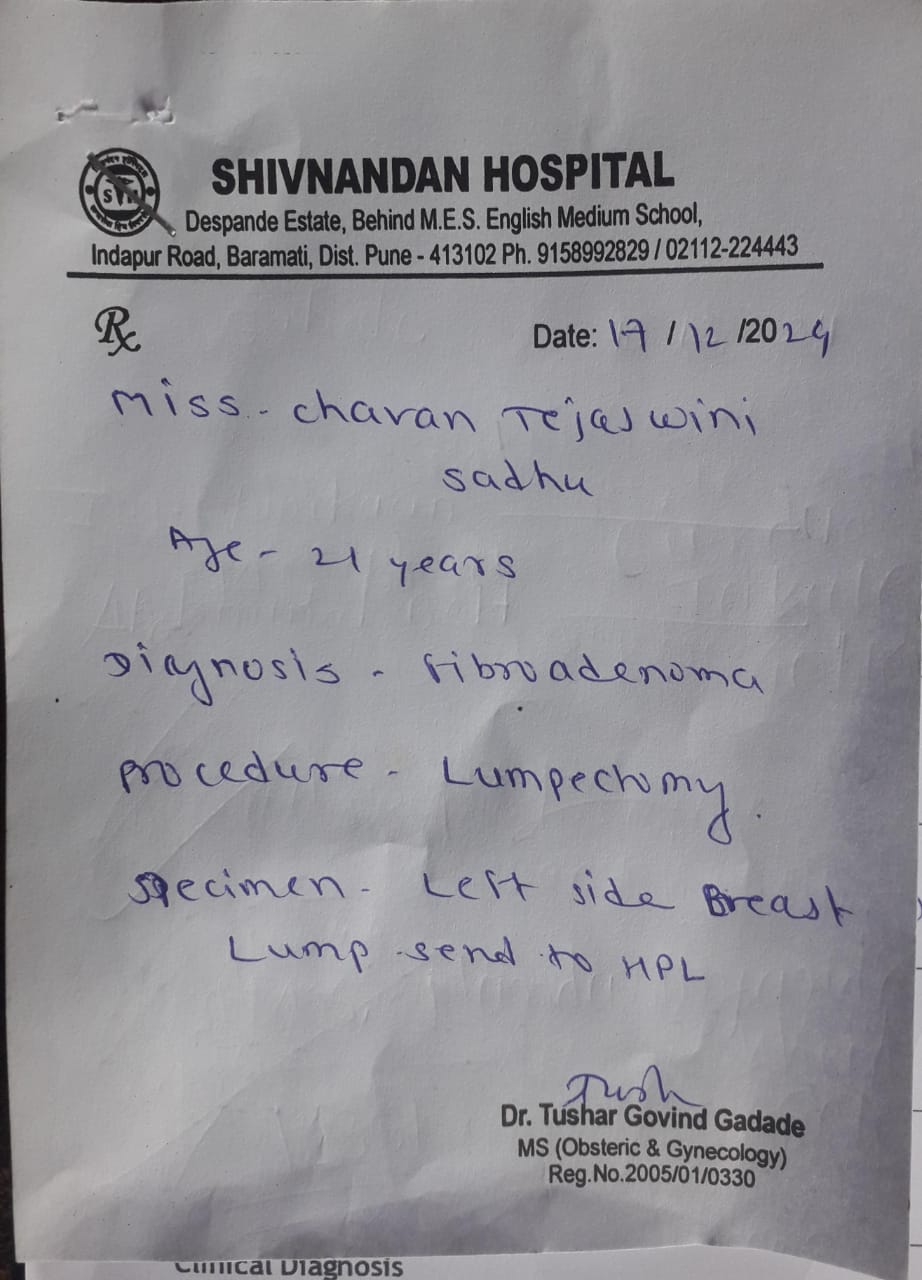 SHIVNANDAN HOSPITAL
Despande Estate, Behind M.E.S. English Medium School,
Indapur Road, Baramati, Dist. Pune - 413102 Ph. 9158992829 / 02112-224443
Rx
Date: 17 / 12 /2024
Miss. Chavan Tejaswini
Sadhu
Age - 21 years
Diagnosis - Fibroadenoma
Procedure - Lumpectomy.
Specimen - Left side Breast
Lump send to HPL
Tush
Dr. Tushar Govind Gadade
MS (Obsteric & Gynecology)
Reg.No.2005/01/0330
Clinical Diagnosis